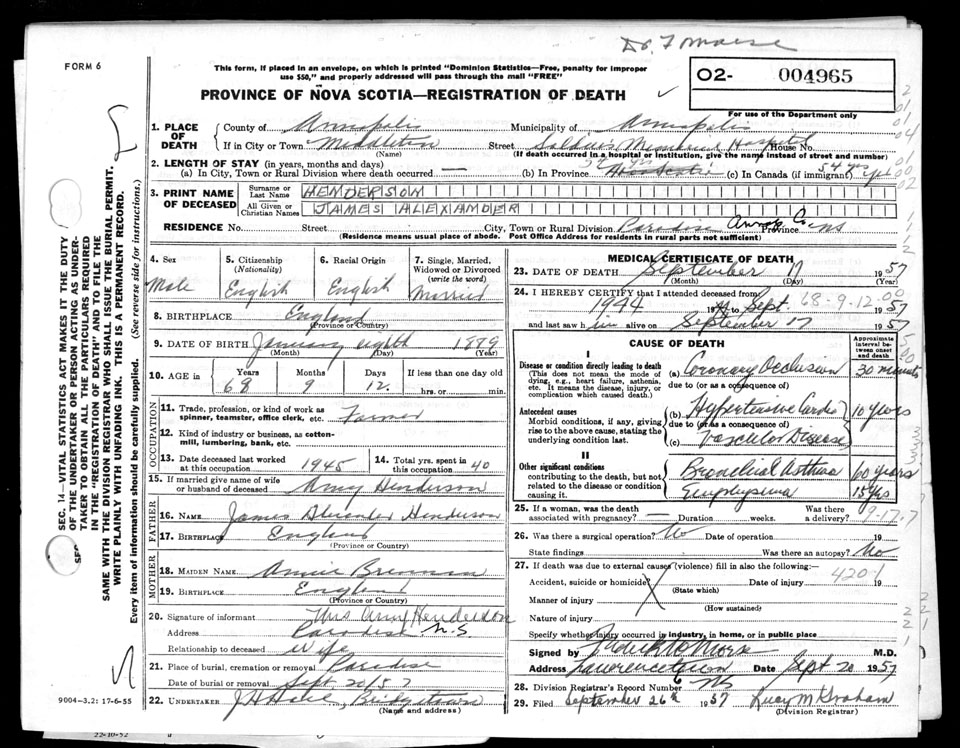 Dr. F Morse
FORM 6
This form, if placed in an envelope, on which is printed "Dominion Statistics—Free, penalty for improper
use $50," and properly addressed will pass through the mail "FREE"
O2- 004965
PROVINCE OF NOVA SCOTIA—REGISTRATION OF DEATH
For use of the Department only
1. PLACE OF DEATH
County of Annapolis Municipality of Annapolis
If in City or Town Middleton Street Soldiers Memorial Hospital House No.
(Name) (If death occurred in a hospital or institution, give the name instead of street and number)
2. LENGTH OF STAY (in years, months and days)
(a) In City, Town or Rural Division where death occurred — (b) In Province Nova Scotia (c) In Canada (if immigrant) 54 yrs
3. PRINT NAME OF DECEASED
Surname or Last Name HENDERSON
All Given or Christian Names JAMES ALEXANDER
RESIDENCE No. Street City, Town or Rural Division Paradise Annap Co. Province NS
(Residence means usual place of abode. Post Office Address for residents in rural parts not sufficient)
4. Sex
Male
5. Citizenship
(Nationality)
English
6. Racial Origin
English
7. Single, Married,
Widowed or Divorced
(write the word)
Married
8. BIRTHPLACE England
(Province or Country)
9. DATE OF BIRTH January eighth 1889
(Month) (Day) (Year)
10. AGE in Years Months Days If less than one day old
68 9 12 hrs. or min.
OCCUPATION
11. Trade, profession, or kind of work as
spinner, teamster, office clerk, etc. Farmer
12. Kind of industry or business, as cotton-
mill, lumbering, bank, etc.
13. Date deceased last worked
at this occupation 1945
14. Total yrs. spent in
this occupation 40
15. If married give name of wife
or husband of deceased Amy Henderson
FATHER
16. Name James Alexander Henderson
17. Birthplace England
(Province or Country)
MOTHER
18. MAIDEN NAME Annie Brennan
19. BIRTHPLACE England
(Province or Country)
20. Signature of informant Mrs Amy Henderson
Address Paradise N.S
Relationship to deceased Wife
21. Place of burial, cremation or removal Paradise
Date of burial or removal Sept 20/57
22. UNDERTAKER Bridgetown
(Name and address)
MEDICAL CERTIFICATE OF DEATH
23. DATE OF DEATH September 17 1957
(Month) (Day) (Year)
24. I HEREBY CERTIFY that I attended deceased from
1944 to Sept. 1957
68-9-12-00
and last saw him alive on September 17 1957
CAUSE OF DEATH
Approximate
interval be-
tween onset
and death
I
Disease or condition directly leading to death
(This does not mean the mode of
dying, e.g., heart failure, asthenia,
etc. It means the disease, injury, or
complication which caused death.)
(a) Coronary Occlusion 30 minutes
due to (or as a consequence of)
Antecedent causes
Morbid conditions, if any, giving
rise to the above cause, stating the
underlying condition last.
(b) Hypertensive Cardio 10 years
due to (or as a consequence of)
(c) Vascular Disease
II
Other significant conditions
contributing to the death, but not
related to the disease or condition
causing it.
Bronchial Asthma 60 years
Emphysema 15 yrs
25. If a woman, was the death
associated with pregnancy? — Duration weeks. Was there
a delivery?
9-17-7
26. Was there a surgical operation? No Date of operation 19
State findings Was there an autopsy? No
27. If death was due to external causes (violence) fill in also the following:—
Accident, suicide or homicide? Date of injury 19
(State which)
4201
Manner of injury
(How sustained)
Nature of injury
Specify whether injury occurred in industry, in home, or in public place
Signed by M.D.
Address Lawrencetown Date Sept 20 1957
28. Division Registrar's Record Number
29. Filed September 26th 1957 Lucy M Graham
(Division Registrar)
SEC. 14—VITAL STATISTICS ACT MAKES IT THE DUTY
OF THE UNDERTAKER OR PERSON ACTING AS UNDER-
TAKER TO OBTAIN ALL THE PARTICULARS REQUIRED
IN THE "REGISTRATION OF DEATH" AND TO FILE THE
SAME WITH THE DIVISION REGISTRAR WHO SHALL ISSUE THE BURIAL PERMIT.
WRITE PLAINLY WITH UNFADING INK. THIS IS A PERMANENT RECORD.
Every item of information should be carefully supplied. (See reverse side for instructions.)
9004-3.2: 17-6-55
22-10-52